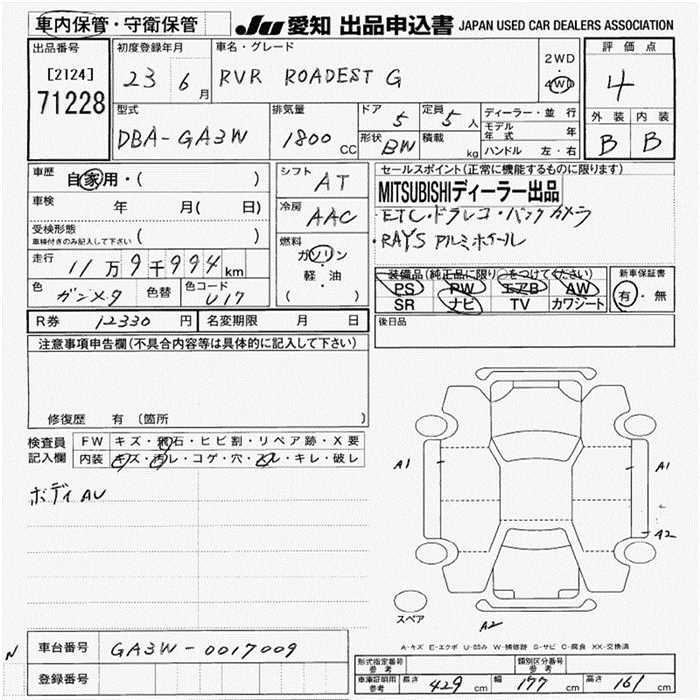 車内保管・守衛保管
JU 愛知 出品申込書 JAPAN USED CAR DEALERS ASSOCIATION
出品番号
[2124]
71228
初度登録年月
23 6月
車名・グレード
RVR ROADEST G
2WD
・
4WD
評価点
4
外装 内装
B B
型式
DBA-GA3W
排気量
1800 CC
ドア 5
定員 5人
形状 BW
積載 kg
ディーラー・並行
モデル年式 年
ハンドル 左・右
車歴 自家用・( )
車検 年 月( 日)
受検形態
車検付きのみ記入して下さい ( )
走行 11万9千994km
色 ガンメタ 色替 色コード U17
シフト AT
冷房 AAC
燃料
ガソリン
軽・油
( )
セールスポイント(正常に機能するものに限ります)
MITSUBISHIディーラー出品
・ETC・ドラレコ・バックカメラ
・RAYS アルミホイール
装備品(純正品に限り○をつけてください)
PS PW エアB AW
SR ナビ TV カワシート
新車保証書
有・無
R券 12330円 名変期限 月 日
後日品
注意事項申告欄(不具合内容等は具体的に記入して下さい)
修復歴 有 〔箇所 〕
検査員記入欄
FW キズ・飛石・ヒビ割・リペア跡・X要
内装 キズ・汚レ・コゲ・穴・スレ・キレ・破レ
ボディAU
A1
A1
A2
スペア
A2
A-キズ E-エクボ U-凹み W-補修跡 S-サビ C-腐食 XX-交換済
N
車台番号 GA3W-0017009
登録番号
形式指定番号 参考
類別区分番号 参考
車庫証明用 参考 長さ 429cm 幅 177cm 高さ 161cm